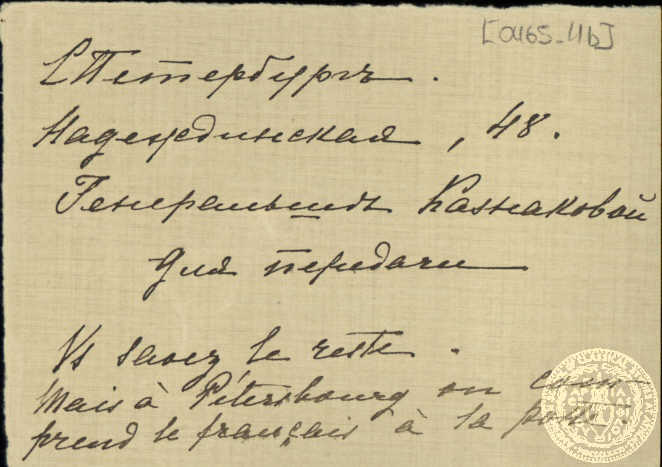 [0465-11b]
С Петербургъ.
Надеждинская, 48.
Генеральшѣ Казнаковой
для передачи
Vs savez le reste.
Mais à Pétersbourg on com-
prend le français à la poste.